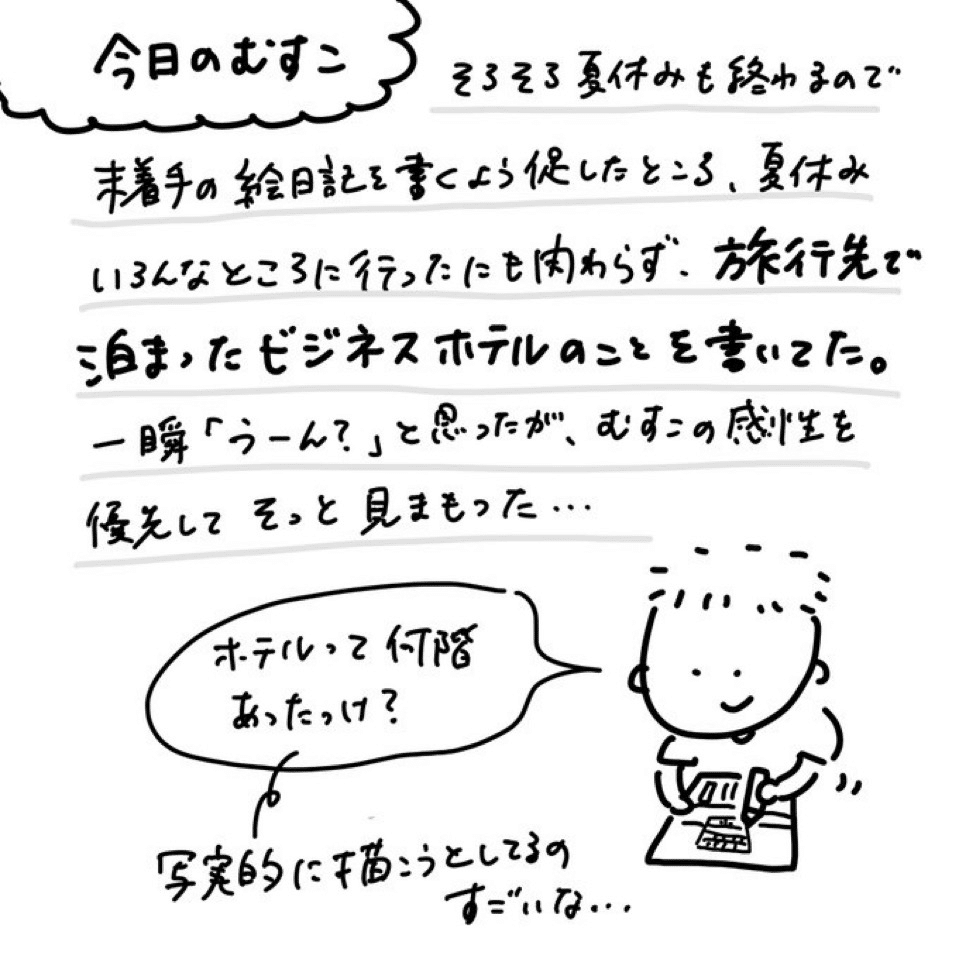 今日のむすこ
そろそろ夏休みも終わるので
未着手の絵日記を書くよう促したところ、夏休み
いろんなところに行ったにも関わらず、旅行先で
泊まったビジネスホテルのことを書いてた。
一瞬「うーん?」と思ったが、むすこの感性を
優先してそっと見まもった…
ホテルって何階
あったっけ?
写実的に描こうとしてるの
すごいな…